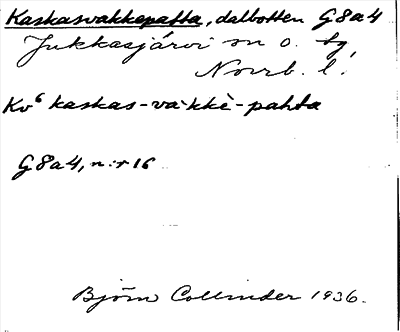 Kaskasvakkepatta, dalbotten G8a4
Jukkasjärvi sn o. tg,
Norrb. l.
Kv⁶ kaskas-va·kkè-pahta
G8a4, n:r 16
Björn Collinder 1936.